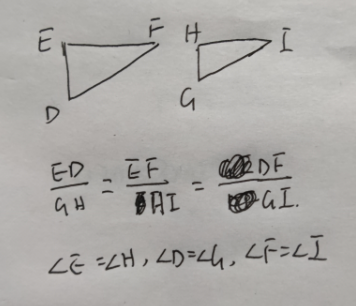 E F H I
D G
ED/GH = EF/HI = DF/GI.
∠E=∠H, ∠D=∠G, ∠F=∠I